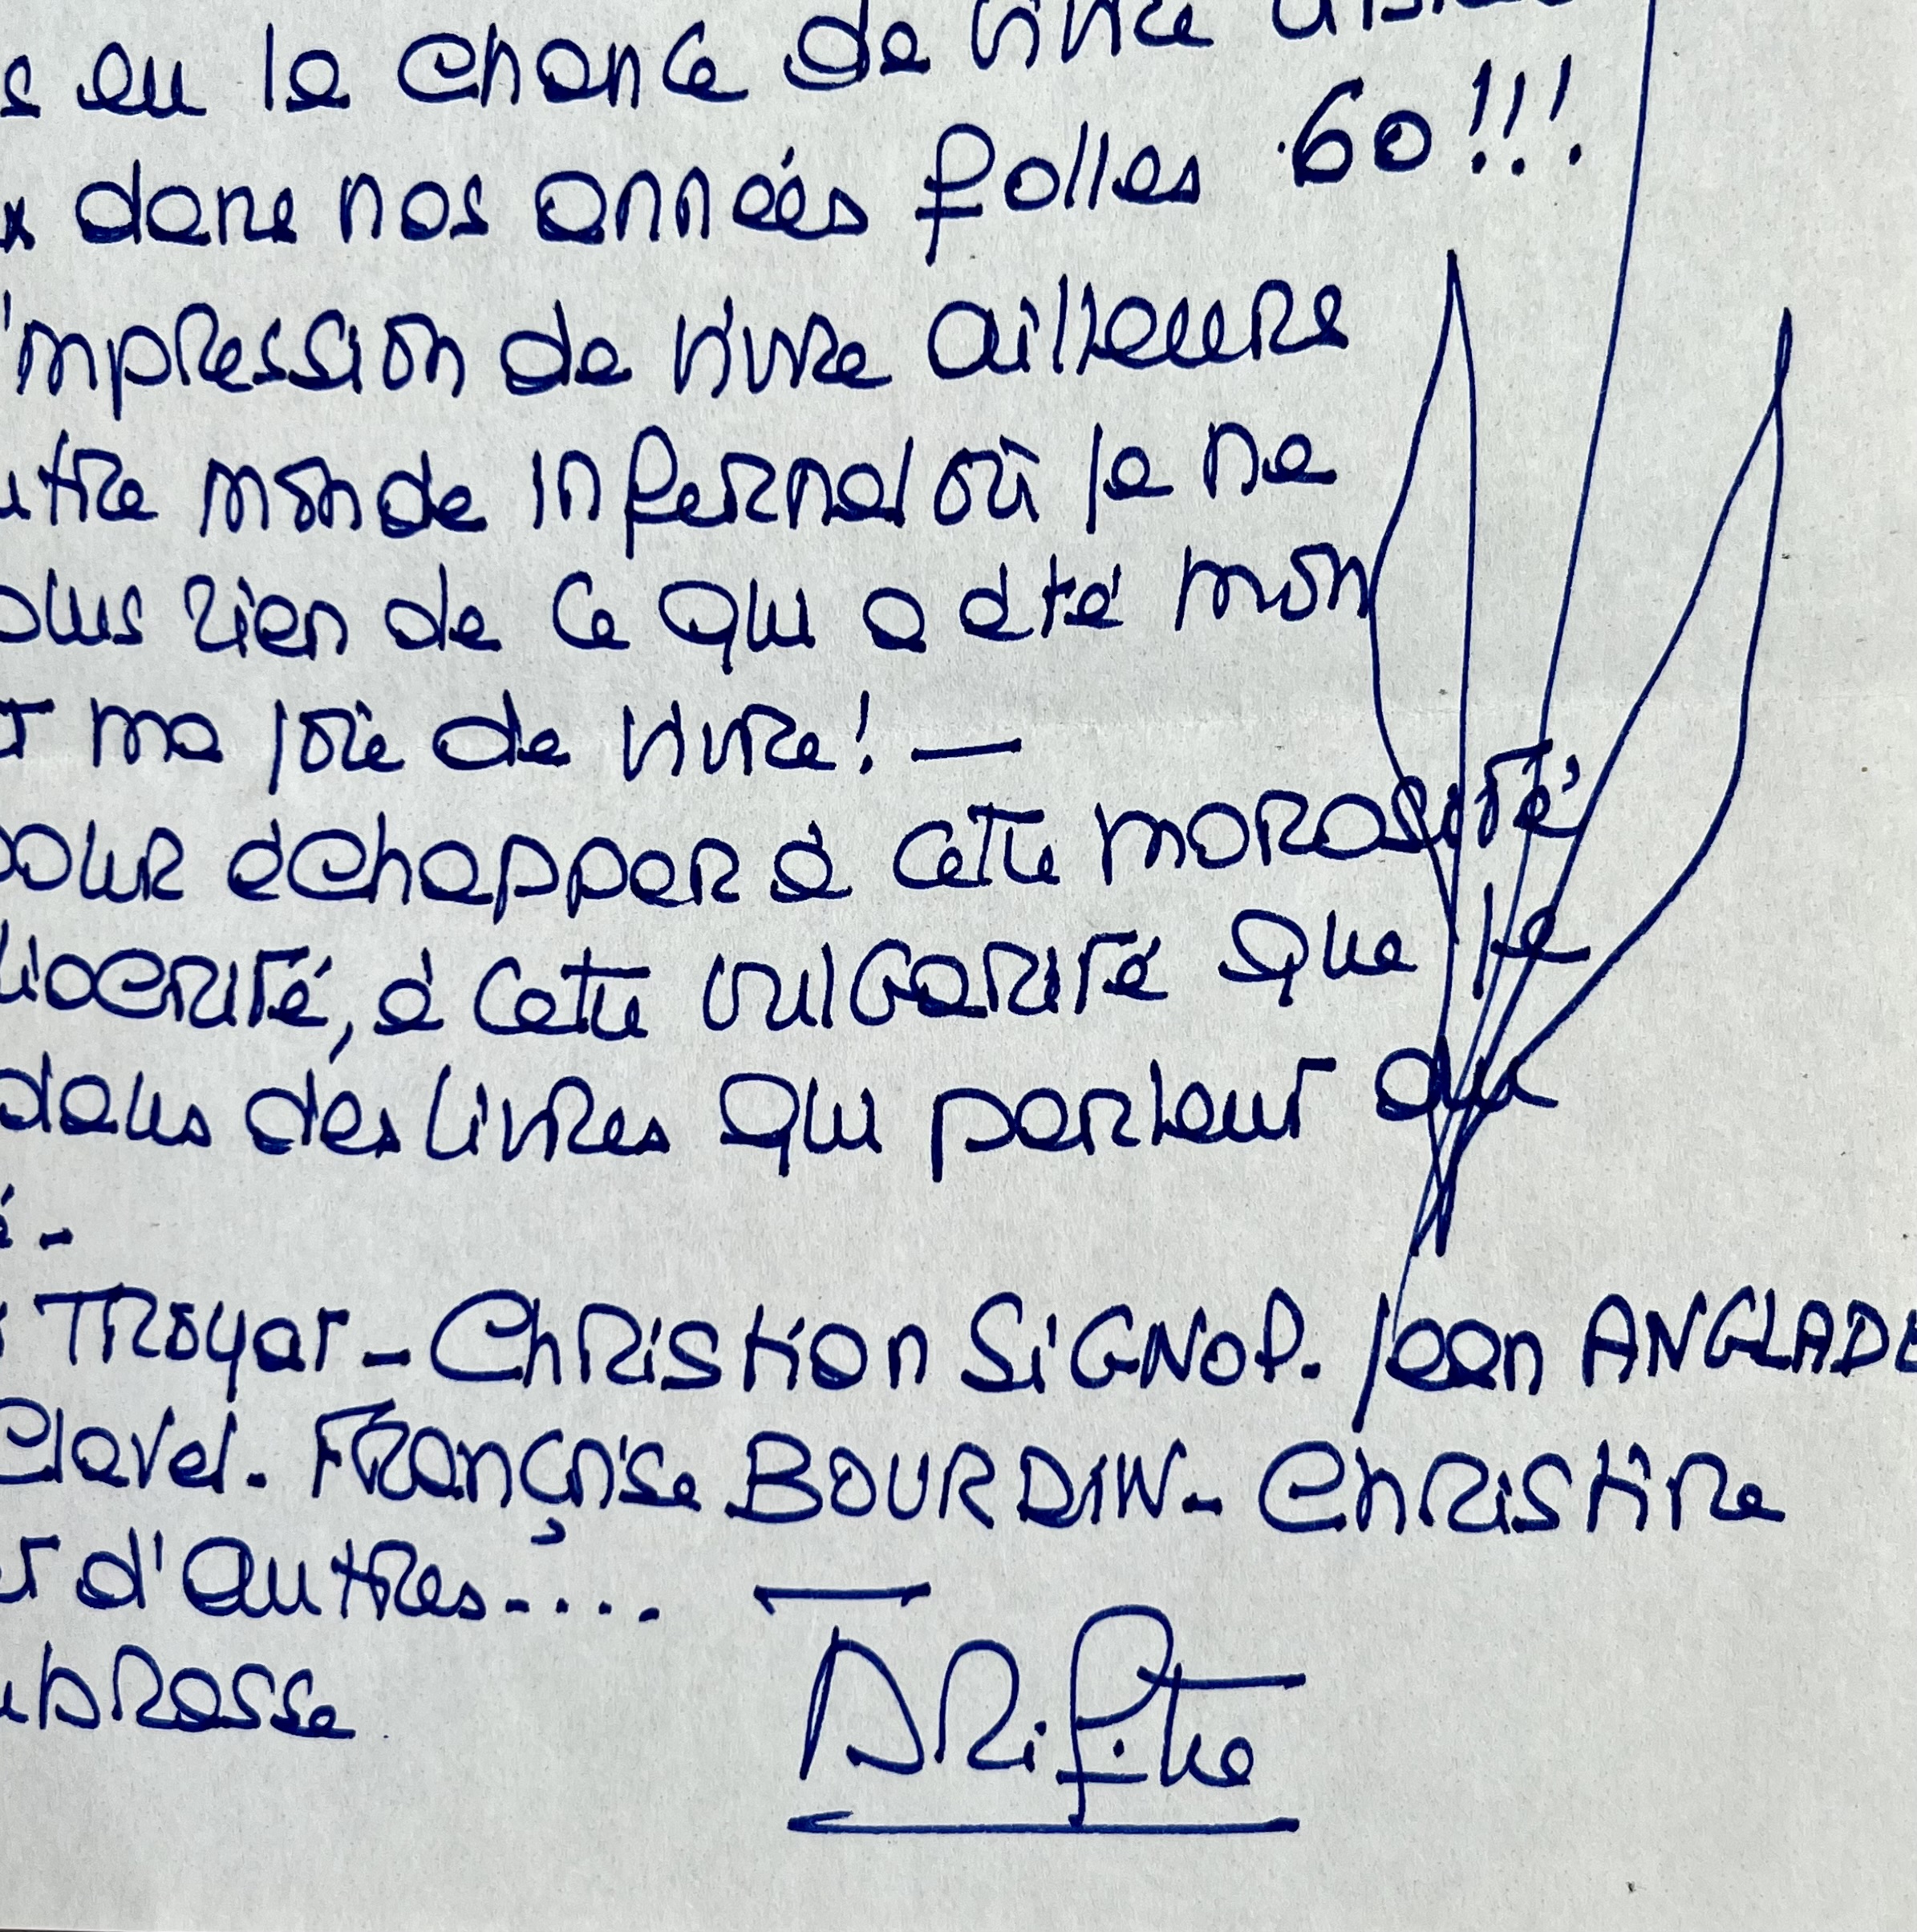 eu la chance de vivre
dans nos années folles 60!!!
'impression de vivre ailleurs
utre monde infernal où je ne
plus rien de ce qui a été mon
t ma joie de vivre! —
pour échapper à cette morosité
diocrité, à cette vulgarité que je
dans des livres qui parlent du
é -
TROYAT - Christian SiGNOL. Jean ANGLADE
Clavel. Françoise BOURDIN - Christine
et d'autres - .... —
mbrasse